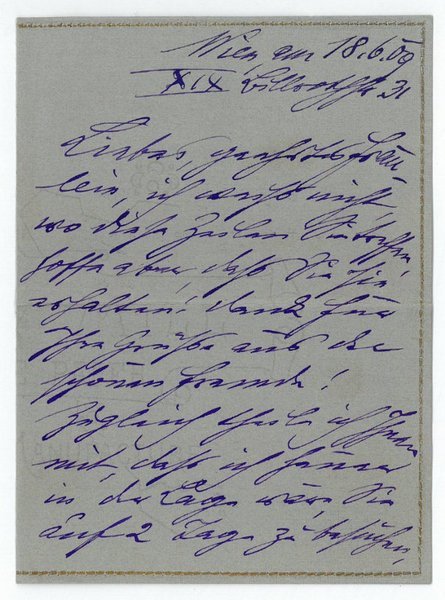 Wien, am 18.6.09
XIX Billrothstr 31
Liebes, geehrtes Fräu-
lein, ich weiß nicht,
wo diese Zeilen Sie treffen,
hoffe aber, daß Sie sie
erhalten! Dank für
Ihre Grüße aus der
schönen Fremde!
Zugleich theile ich Ihnen
mit, daß ich heuer
in der Lage wäre, Sie
auf 2 Tage zu besuchen,